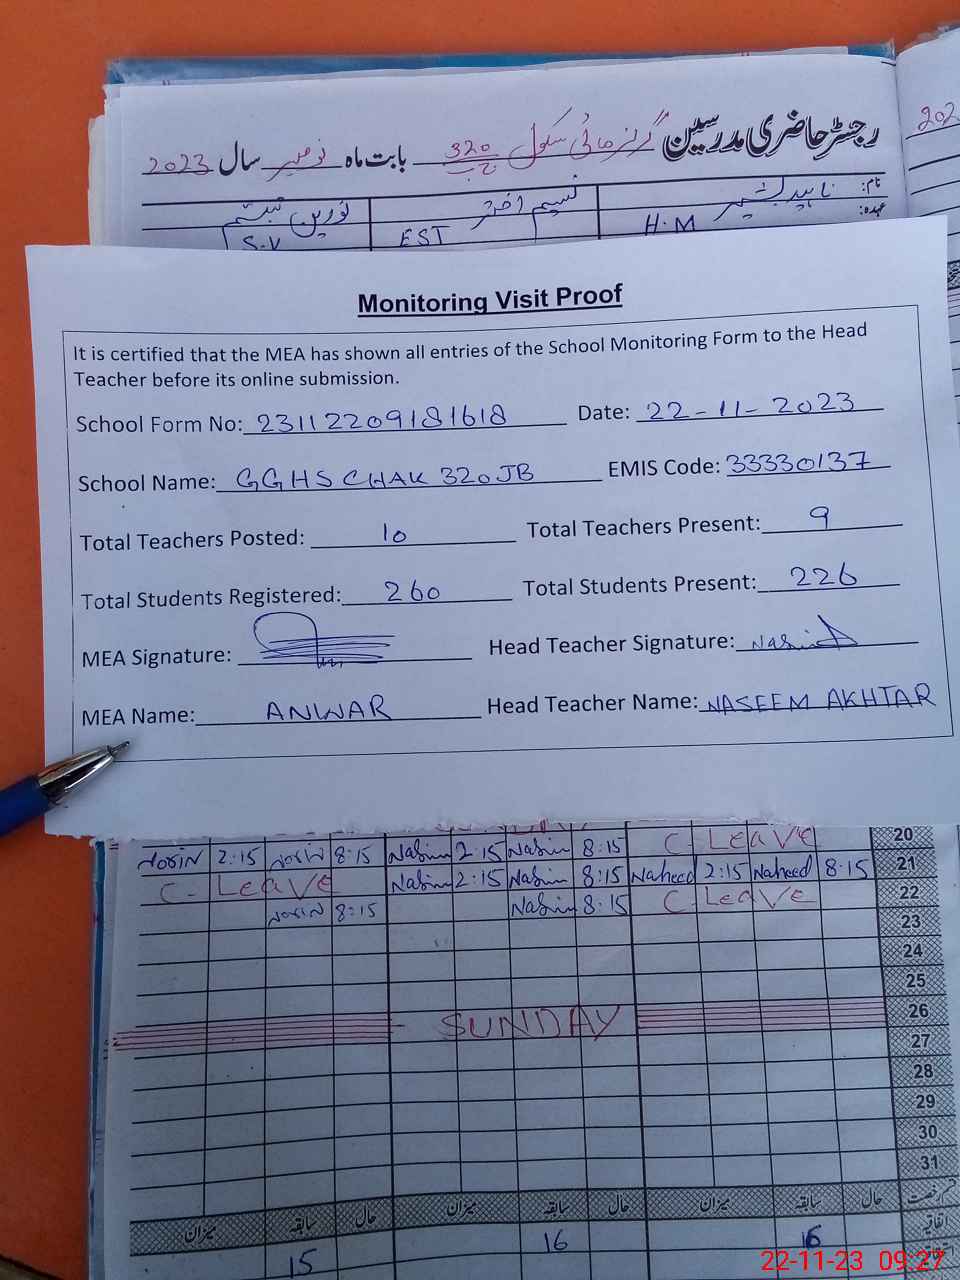 رجسٹر حاضری مدرسین گرلز ہائی سکول 320 ج ب بابت ماہ نومبر سال 2023
202
نام: ناہید نسیم اختر نورین تبسم
عہدہ: H.M EST S.V
Monitoring Visit Proof
It is certified that the MEA has shown all entries of the School Monitoring Form to the Head
Teacher before its online submission.
School Form No: 23112209181618 Date: 22-11-2023
School Name: GGHS CHAK 320 JB EMIS Code: 33330137
Total Teachers Posted: 10 Total Teachers Present: 9
Total Students Registered: 260 Total Students Present: 226
MEA Signature: Head Teacher Signature:
MEA Name: ANWAR Head Teacher Name: NASEEM AKHTAR
Norin 2:15 Norin 8:15 Nasim 2:15 Nasim 8:15 C-Leave 20
C-Leave Nasim 2:15 Nasim 8:15 Naheed 2:15 Naheed 8:15 21
Norin 8:15 Nasim 8:15 C-Leave 22
23
24
25
SUNDAY 26
27
28
29
30
31
میزان سابقہ حال میزان سابقہ حال میزان سابقہ حال قسم رخصت
15 16 16 اتفاقیہ
22-11-23 09:27